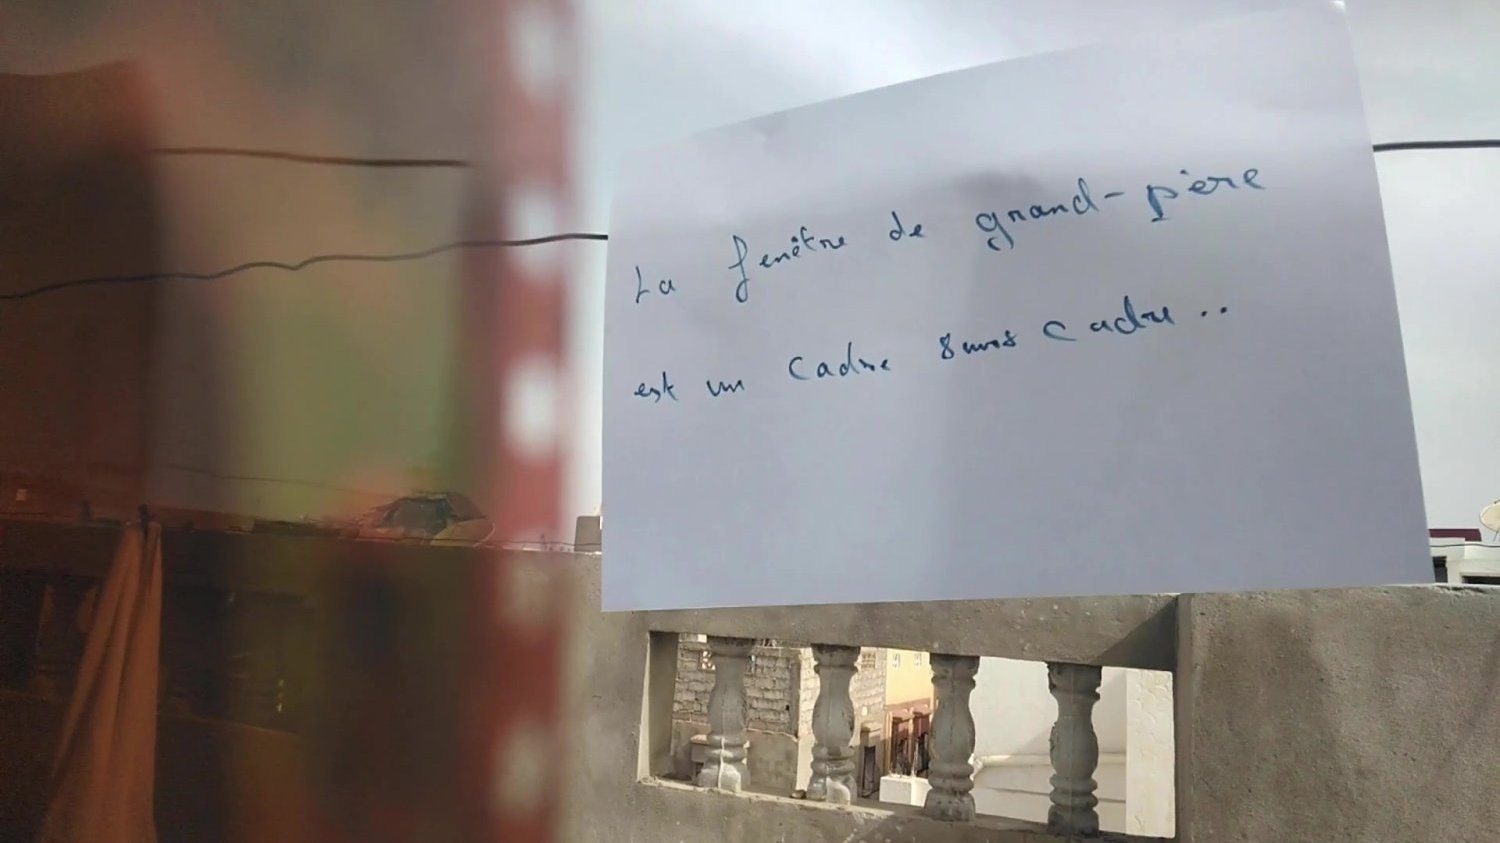 La fenêtre de grand-père
est un cadre sans cadre..